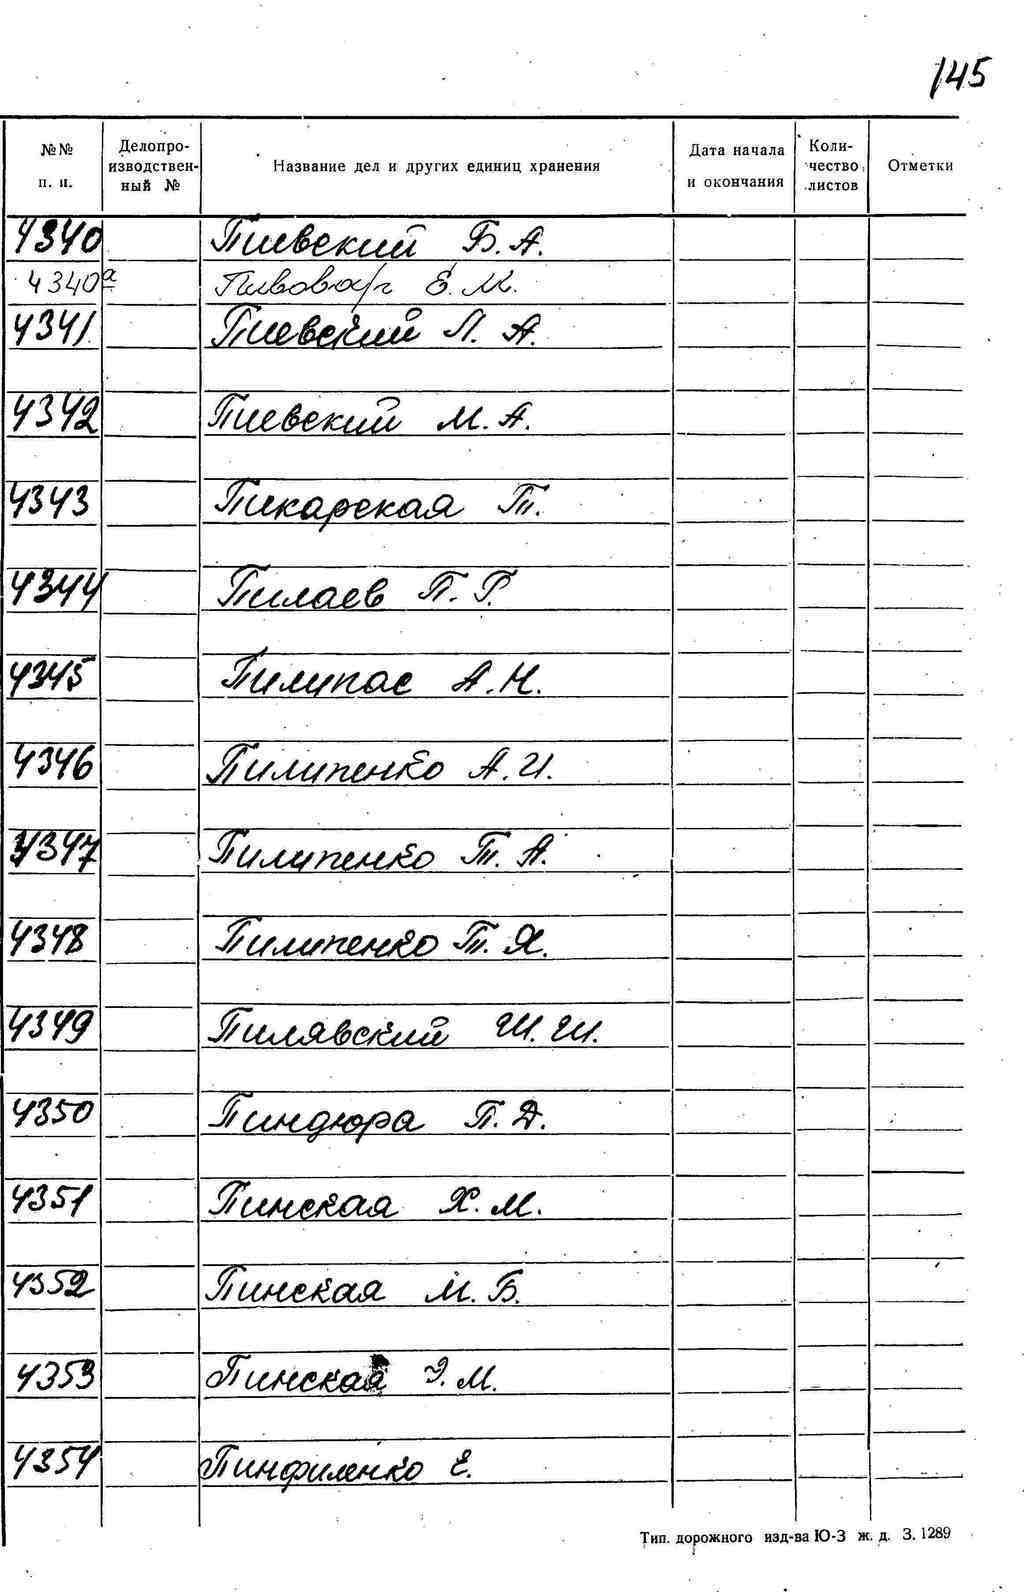 145
№№ п. п.
Делопроизводственный №
Название дел и других единиц хранения
Дата начала и окончания
Количество листов
Отметки
4340 Пиевский Б. А.
4340а Пивовар Е. М.
4341 Пиевский Л. А.
4342 Пиевский М. А.
4343 Пикарская Т.
4344 Пилаев П. Г.
4345 Пилипас А. Н.
4346 Пилипенко А. И.
4347 Пилипенко Т. А.
4348 Пилипенко Т. Я.
4349 Пилявский Ш. Ш.
4350 Пиндюра П. Д.
4351 Пинская Х. М.
4352 Пинская М. Б.
4353 Пинская Э. М.
4354 Пинфиленко Е.
Тип. дорожного изд-ва Ю-З ж. д. З. 1289